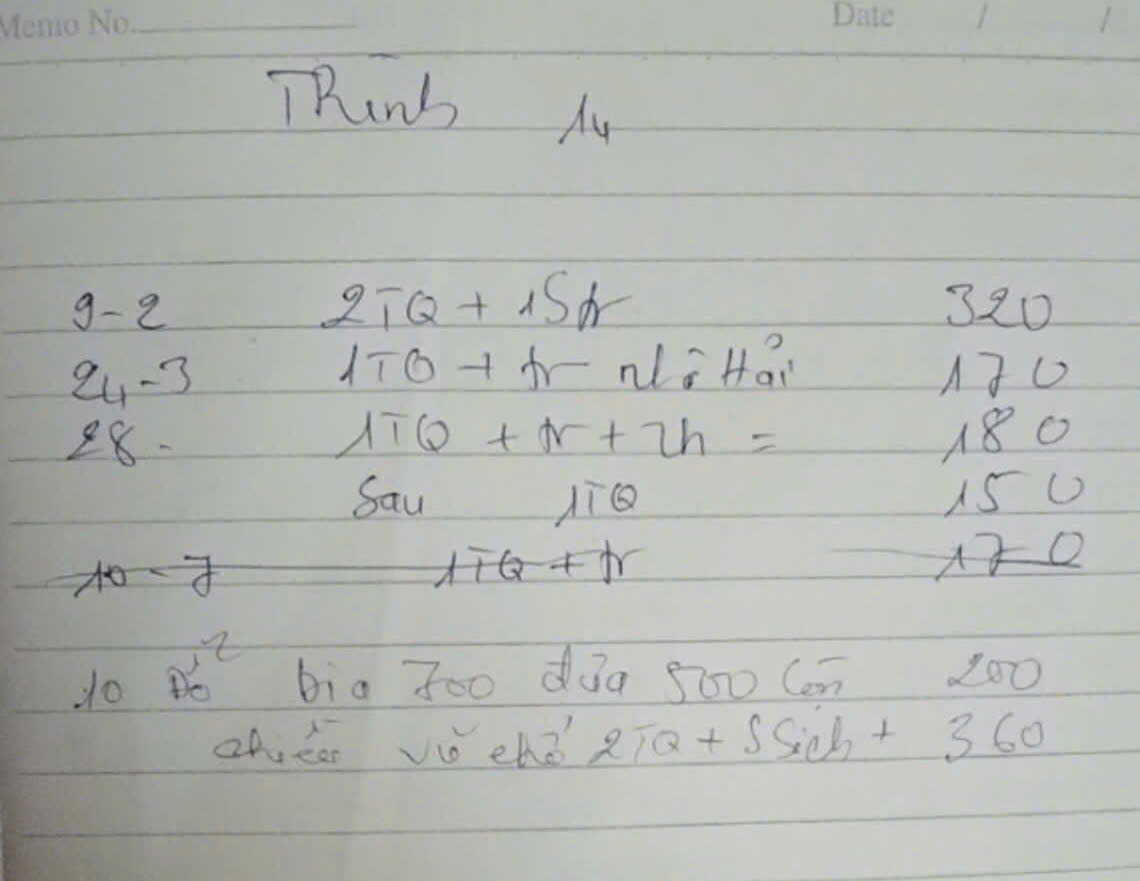 Memo No. Date / /
Thình 14
9-2 2TQ + 1S tr 320
24-3 1TQ + tr nhỏ Hải 170
28- 1TQ + tr + 2h = 180
Sau 1TQ 150
10-7 1TQ + tr 170
10 Đố² bia 700 đưa 500 Còn 200
chiều vũ chở 2TQ + S Sịch + 360